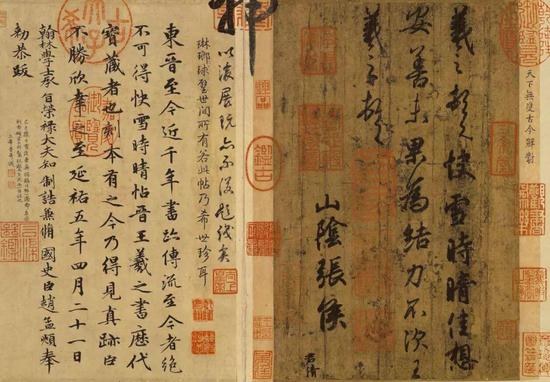 天下無雙古今鮮對
羲之頓首快雪時晴佳想
安善未果為結力不次王
羲之頓首
山陰張侯
君倩
神
以後展玩亦不復題識矣
琳瑯球璧世間所有若此帖乃希世珍耳
東晉至今近千年書跡傳流至今者絕
不可得快雪時晴帖晉王羲之書歷代
寶藏者也刻本有之今乃得見真跡臣
不勝欣幸之至延祐五年四月二十一日
翰林學士承旨榮祿大夫知制誥兼脩 國史臣趙孟頫奉
勑恭跋